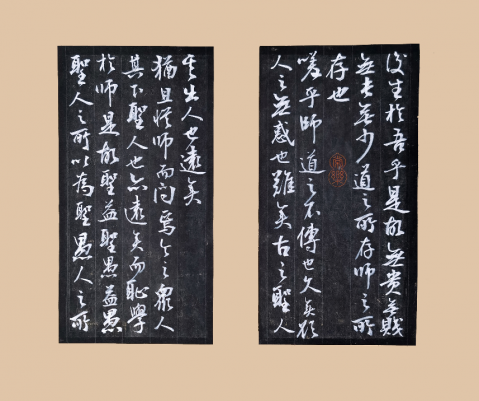 後生於吾乎是故無貴無賤
無長無少道之所存師之所
存也
嗟乎師道之不傳也久矣欲
人之無惑也難矣古之聖人
其出人也遠矣
猶且從師而問焉今之眾人
其下聖人也亦遠矣而恥學
於師是故聖益聖愚益愚
聖人之所以為聖愚人之所